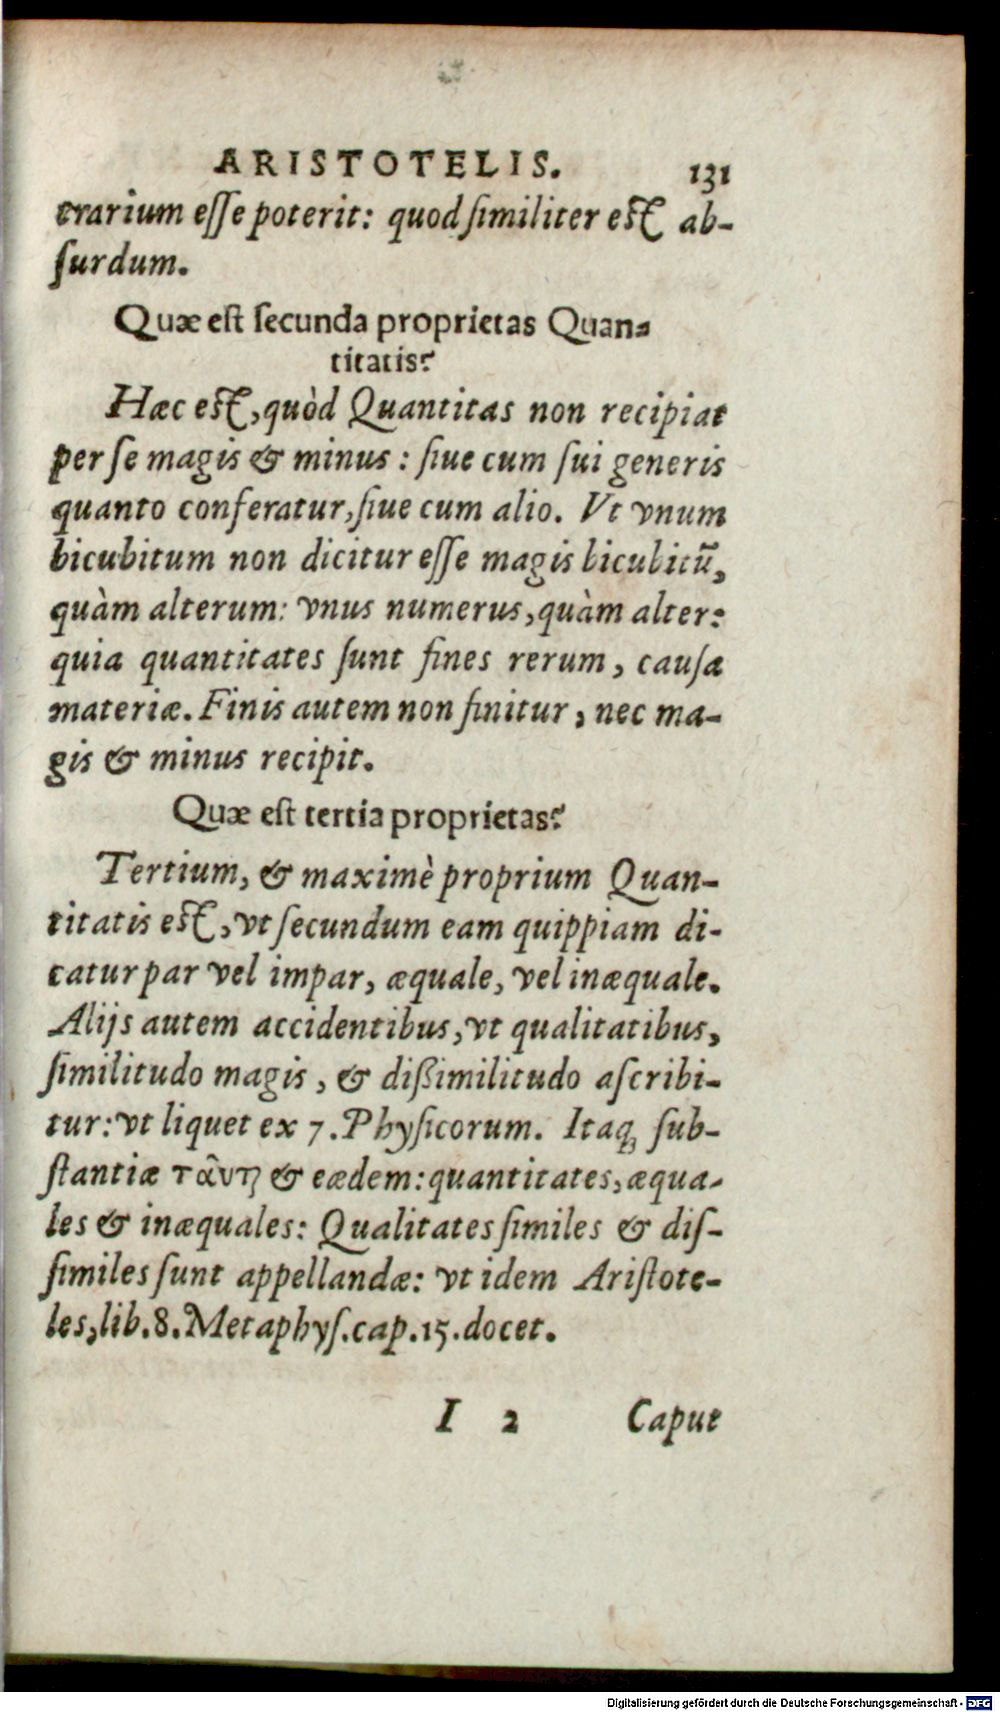 ARISTOTELIS. 131
trarium eſſe poterit: quod ſimiliter eſt ab-
ſurdum.
Quæ est ſecunda proprietas Quan-
titatis?
Hæc eſt, quòd Quantitas non recipiat
per ſe magis & minus: ſiue cum ſui generis
quanto conferatur, ſiue cum alio. Vt vnum
bicubitum non dicitur eſſe magis bicubitū,
quàm alterum: vnus numerus, quàm alter:
quia quantitates ſunt fines rerum, cauſa
materiæ. Finis autem non finitur, nec ma-
gis & minus recipit.
Quæ eſt tertia proprietas?
Tertium, & maximè proprium Quan-
titatis eſt, vt ſecundum eam quippiam di-
catur par vel impar, æquale, vel inæquale.
Alijs autem accidentibus, vt qualitatibus,
ſimilitudo magis, & dißimilitudo aſcribi-
tur: vt liquet ex 7. Phyſicorum. Itaq; ſub-
ſtantiæ & eædem: quantitates, æqua-
les & inæquales: Qualitates ſimiles & diſ-
ſimiles ſunt appellandæ: vt idem Ariſtote-
les, lib. 8. Metaphyſ. cap. 15. docet.
I 2 Caput
Digitalisierung gefördert durch die Deutsche Forschungsgemeinschaft - DFG